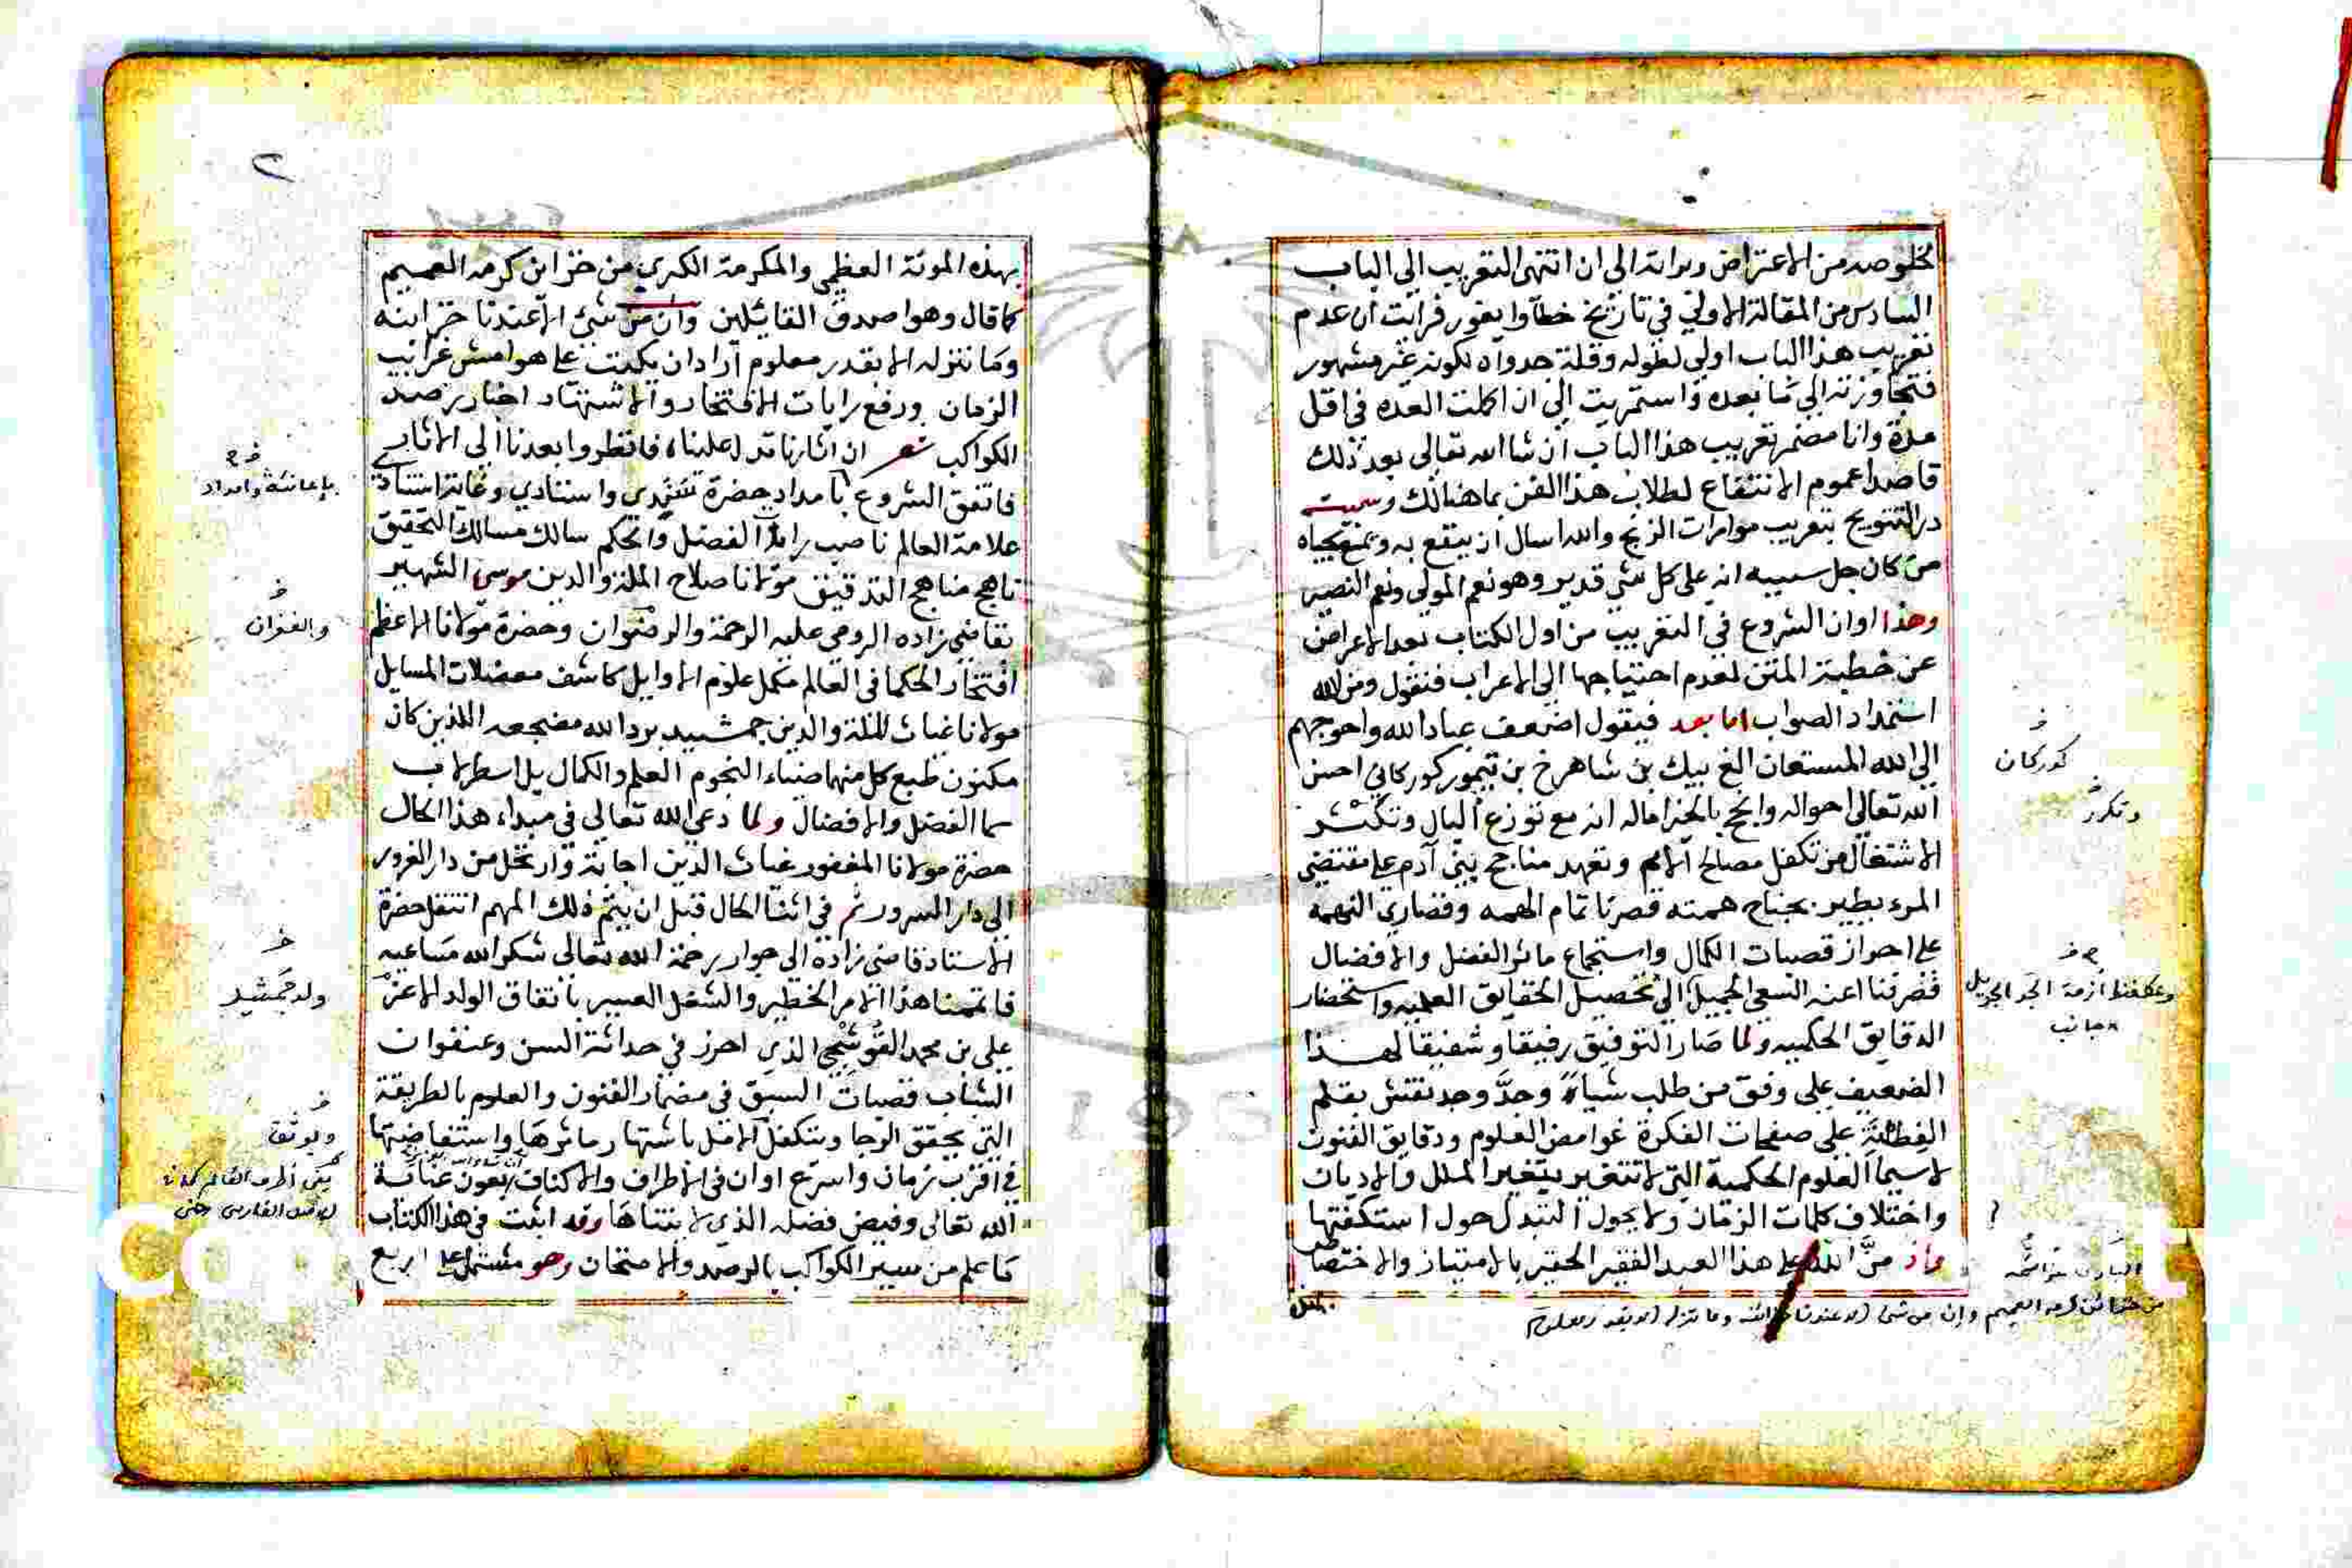 لخلوصه من الاعتراض وبراءته الى ان انتهى التقريب الى الباب
السادس من المقالة الاولى في تاريخ خطا وايغور فرايت ان عدم
تقريب هذا الباب اولى لطوله وقلة جدواه لكونه غير مشهور
فتجاوزته الى ما بعده واستمريت الى ان اكملت العده في اقل
مدة وانا مضمر تقريب هذا الباب ان شا الله تعالى بعد ذلك
قاصدا عموم الانتفاع لطلاب هذا الفن بما هنالك وسميته
در التتويج بتقريب موامرات الزيج والله اسال ان ينتفع به
من كان جل سببيه انه على كل شي قدير وهو نعم المولى ونعم النصير
وهذا اوان الشروع في التقريب من اول الكتاب بعد الاعراض
عن خطبة المتن لعدم احتياجها الى الاعراب فنقول ومن الله
استمداد الصواب اما بعد فيقول اضعف عباد الله واحوجهم
الى الله المستعان الغ بيك بن شاهرخ بن تيمور كوركاني احسن
الله تعالى احواله وانجح بالخير اماله انه مع توزع البال وتكثر
الاشتغال من تكفل مصالح الامم وتعهد مناجح بني آدم على مقتضى
المرء يطير بجناح همته قصرنا تمام الهمه وقصارى النهمه
على احراز قصبات الكمال واستجماع ماثر الفضل والافضال
فصرفنا اعنه السعي الجميل الى تحصيل الحقايق العلميه واستحضار
الدقايق الحكميه ولما صار التوفيق رفيقا وشفيقا لهذا
الضعيف على وفق من طلب شياء وجدَّ وجد نقش بقلم
الفطنة على صفحات الفكرة غوامض العلوم ودقايق الفنون
لا سيما العلوم الحكمية التي لا تتغير بتغير الملل والاديان
واختلاف كلمات الزمان ولا يجول التبدل حول استكفتها
واذ منَّ الله على هذا العبد الفقير الحقير بالامتياز والاختصاص
كوركان
وتكرر
وعطفنا ازمة الجد الجزيل
جانب
من خزائن كرمه العميم وان من شئ الا عندنا خزائنه وما ننزله الا بقدر معلوم
بهذه الموتة العظمى والمكرمة الكبرى من خزاين كرمه العميم
كما قال وهو اصدق القائلين وان من شئ الا عندنا خزاينه
وما ننزله الا بقدر معلوم اراد ان يكتب على هوامش غرايب
الزمان ورفع رايات الافتخار والاشتهار اختار رصد
الكواكب شعر ان اثارنا تدل علينا فانظروا بعدنا الى الاثار
فاتفق الشروع بامداد حضرة سندي واستادي وغاية استنادي
علامة العالم ناصب راية الفضل والحكم سالك مسالك التحقيق
ناهج مناهج التدقيق مولانا صلاح الملة والدين موسى الشهير
بقاضي زاده الرومي عليه الرحمة والرضوان وحضرة مولانا الاعظم
افتخار الحكما في العالم مكمل علوم الاوايل كاشف معضلات المسايل
مولانا غياث الملة والدين جمشيد برد الله مضجعه اللذين كان
مكنون طبع كل منهما ضياء النجوم العلم والكمال بل اسطرلاب
سما الفضل والافضال ولما دعى الله تعالى في مبداء هذا الحال
حضرة مولانا المغفور غياث الدين اجابة وارتحل من دار الغرور
الى دار السرور ثم في اثنا الحال قبل ان يتم ذلك المهم انتقل حضرة
الاستاذ قاضي زادة الى جوار رحمة الله تعالى شكر الله مساعيه
فاتممنا هذا الامر الخطير والشغل العسير باتفاق الولد الاعز
علي بن محمد القوشجي الذي احرز في حداثة السن وعنفوان
الشباب قصبات السبق في مضمار الفنون والعلوم بالطريقة
التي يحقق الرجا ويتكفل الامل باشتهار ماثرها واستفاضتها
في اقرب زمان واسرع اوان في الاطراف والاكناف بعون عناية
الله تعالى وفيض فضله الذي لا يتناها وقد اثبت في هذا الكتاب
ما علم من سير الكواكب بالرصد والامتحان وهو مشتمل على اربع
باعانته وامداد
والغفران
ولد جمشيد
ويوثق